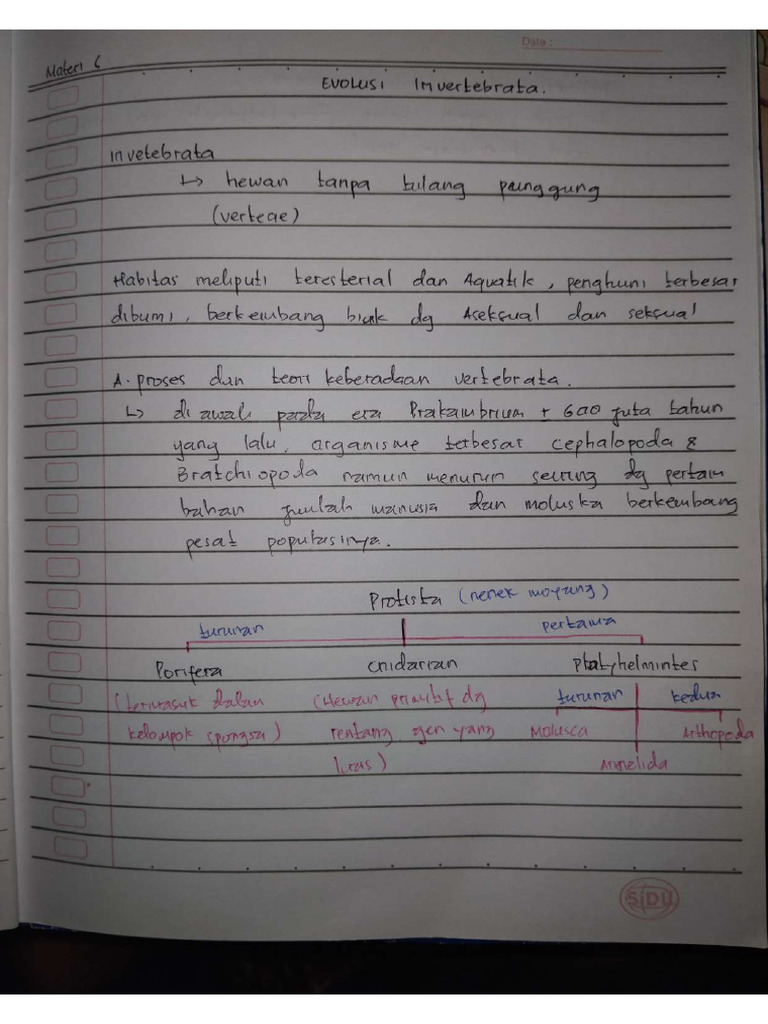 Date :
Materi 6
EVOLUSI Invertebrata.
Invetebrata
↳ hewan tanpa tulang punggung
(verteae)
Habitas meliputi teresterial dan Aquatik, penghuni terbesar
dibumi, berkembang biak dg Aseksual dan seksual
A. proses dan teori keberadaan vertebrata.
↳ di awali pada era Prakambrium ± 600 juta tahun
yang lalu, organisme terbesar cephalopoda &
Bratchiopoda namun menurun seiring dg pertam
bahan jumlah manusia dan moluska berkembang
pesat populasinya.
Protista (nenek moyang)
turunan pertama
Porifera cnidarian Platyhelmintes
(termasuk dalam (Hewan primitif dg turunan kedua
kelompok spongsa) rentang gen yang Molusca Arthopoda
luas) Annelida
SiDU